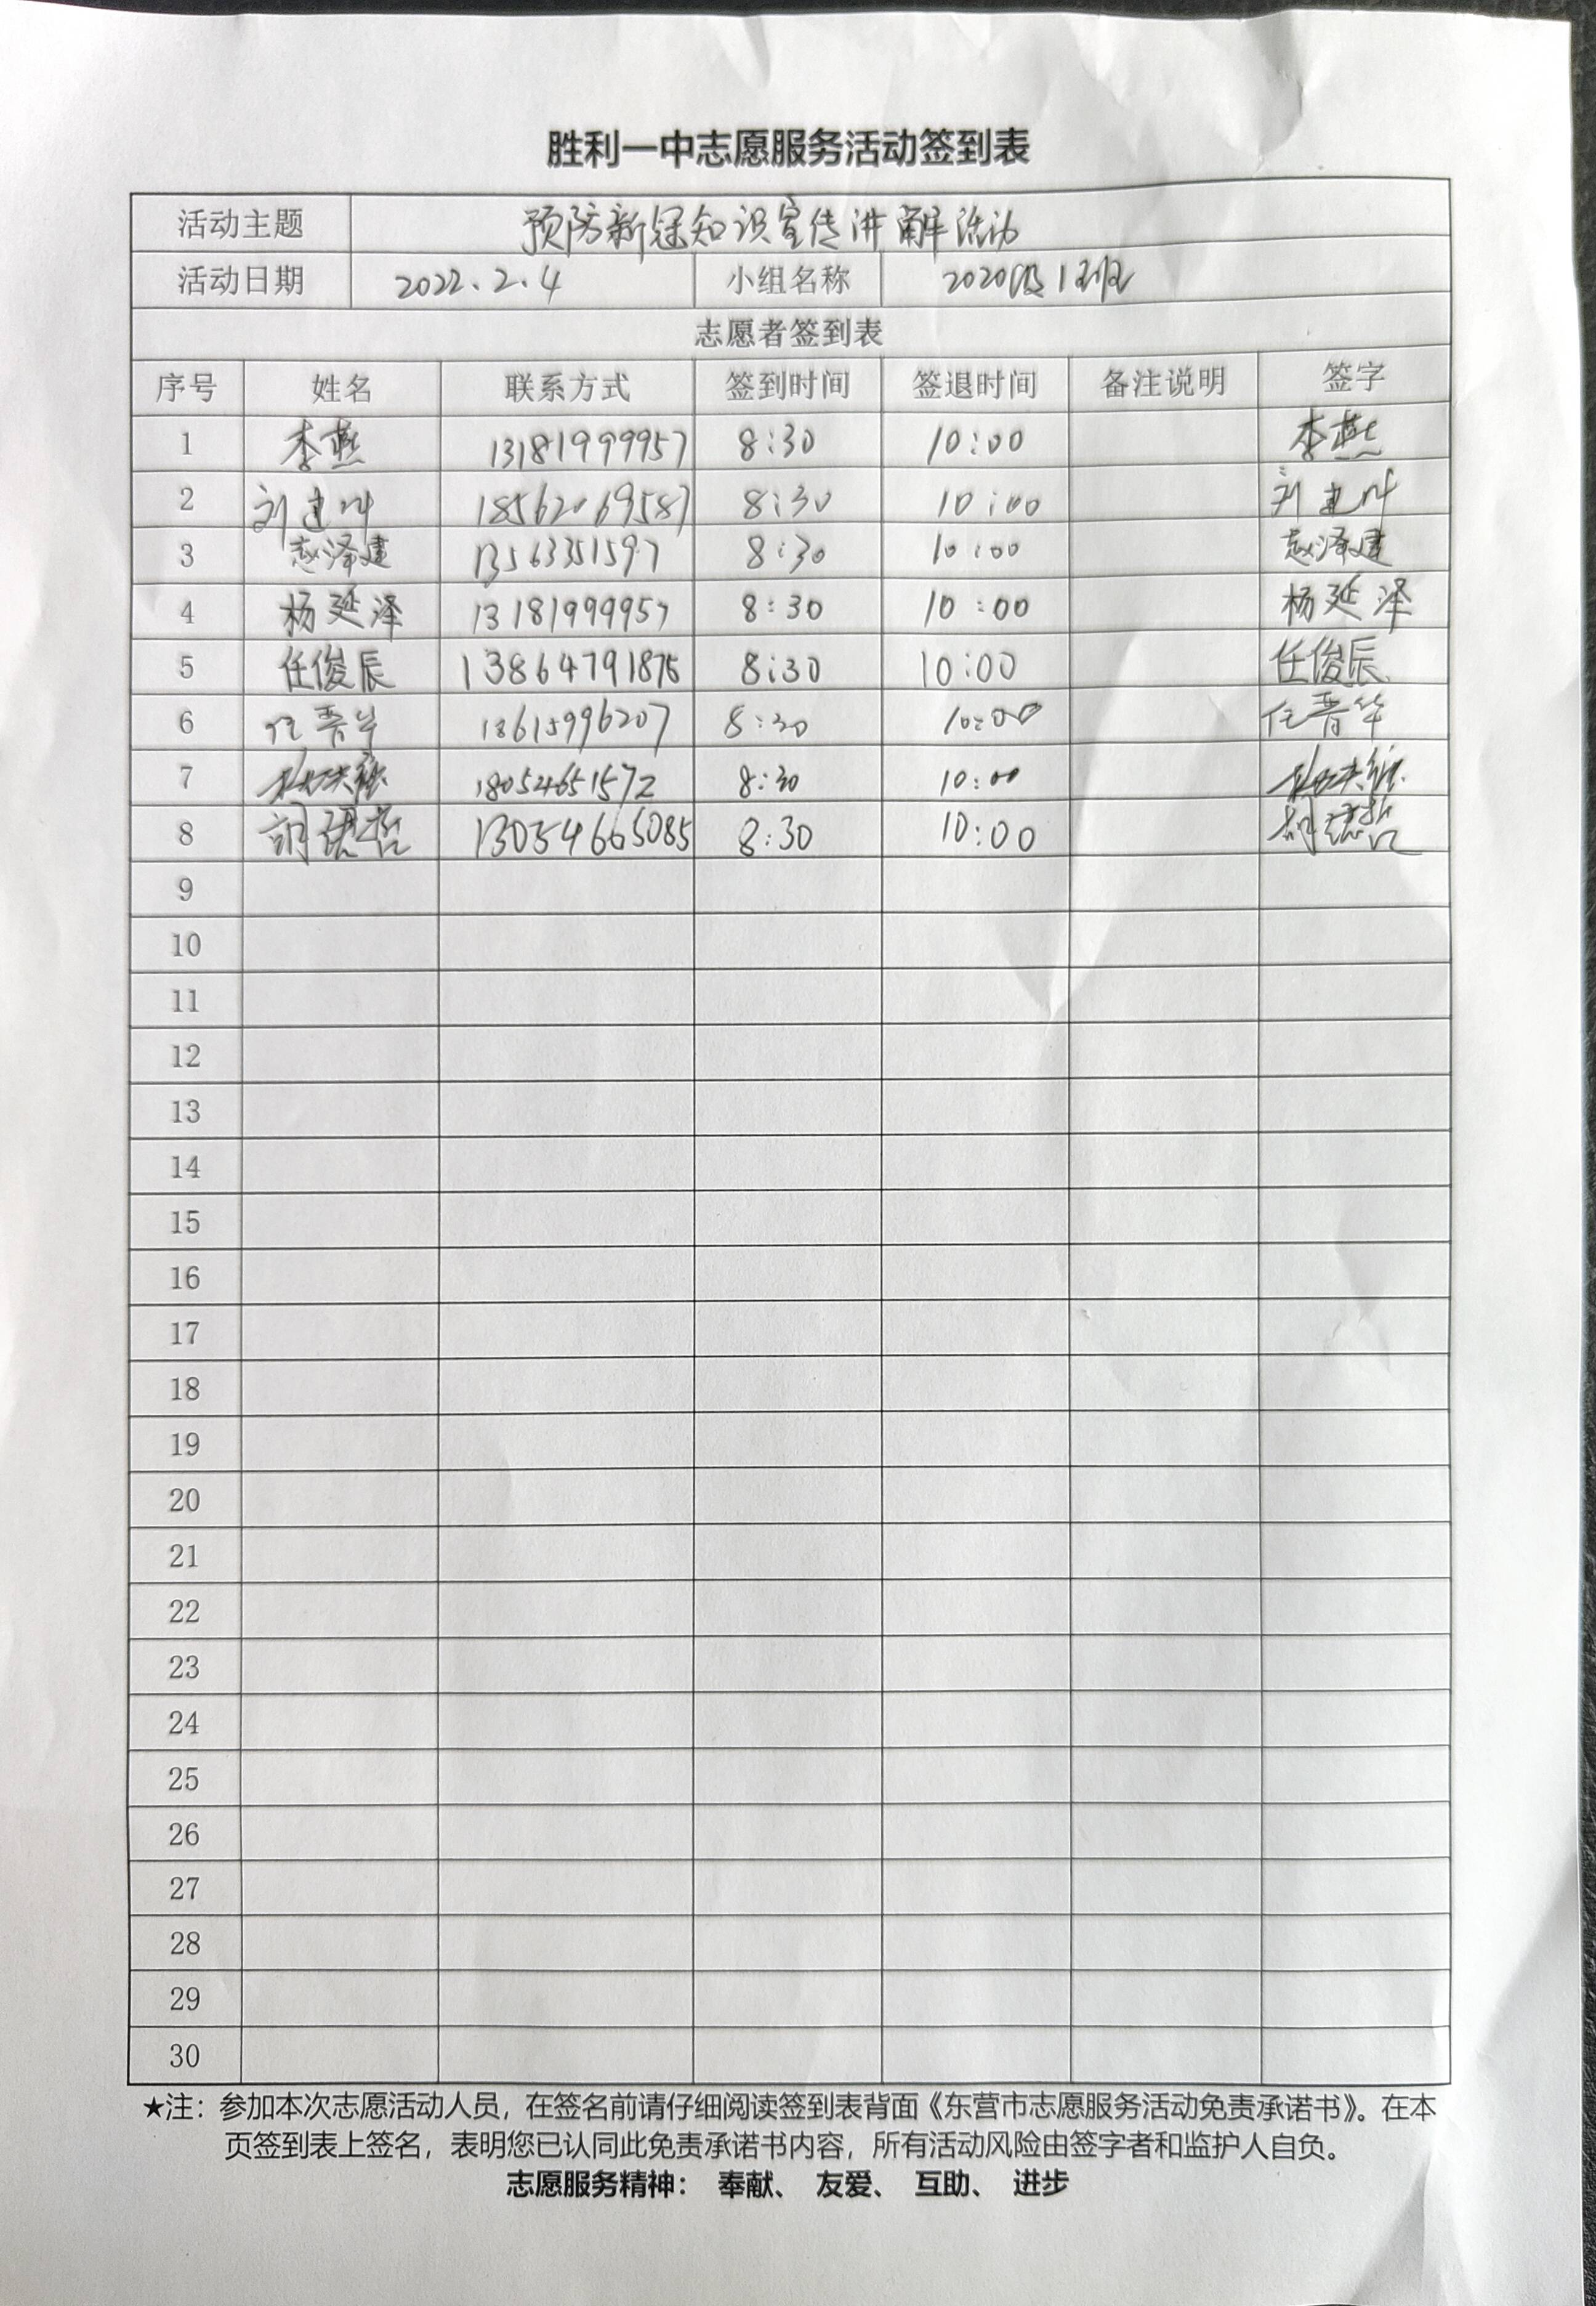 胜利一中志愿服务活动签到表
活动主题 预防新冠知识宣传讲解活动
活动日期 2022.2.4 小组名称 2020级1班
志愿者签到表
序号 姓名 联系方式 签到时间 签退时间 备注说明 签字
1 李燕 13181999957 8:30 10:00 李燕
2 刘建叶 18562069587 8:30 10:00 刘建叶
3 赵泽建 13563351597 8:30 10:00 赵泽建
4 杨延泽 13181999957 8:30 10:00 杨延泽
5 任俊辰 13864791875 8:30 10:00 任俊辰
6 任晋华 13615996207 8:30 10:00 任晋华
7 18054651572 8:30 10:00
8 13054665085 8:30 10:00
9
10
11
12
13
14
15
16
17
18
19
20
21
22
23
24
25
26
27
28
29
30
★注：参加本次志愿活动人员，在签名前请仔细阅读签到表背面《东营市志愿服务活动免责承诺书》。在本
页签到表上签名，表明您已认同此免责承诺书内容，所有活动风险由签字者和监护人自负。
志愿服务精神： 奉献、 友爱、 互助、 进步